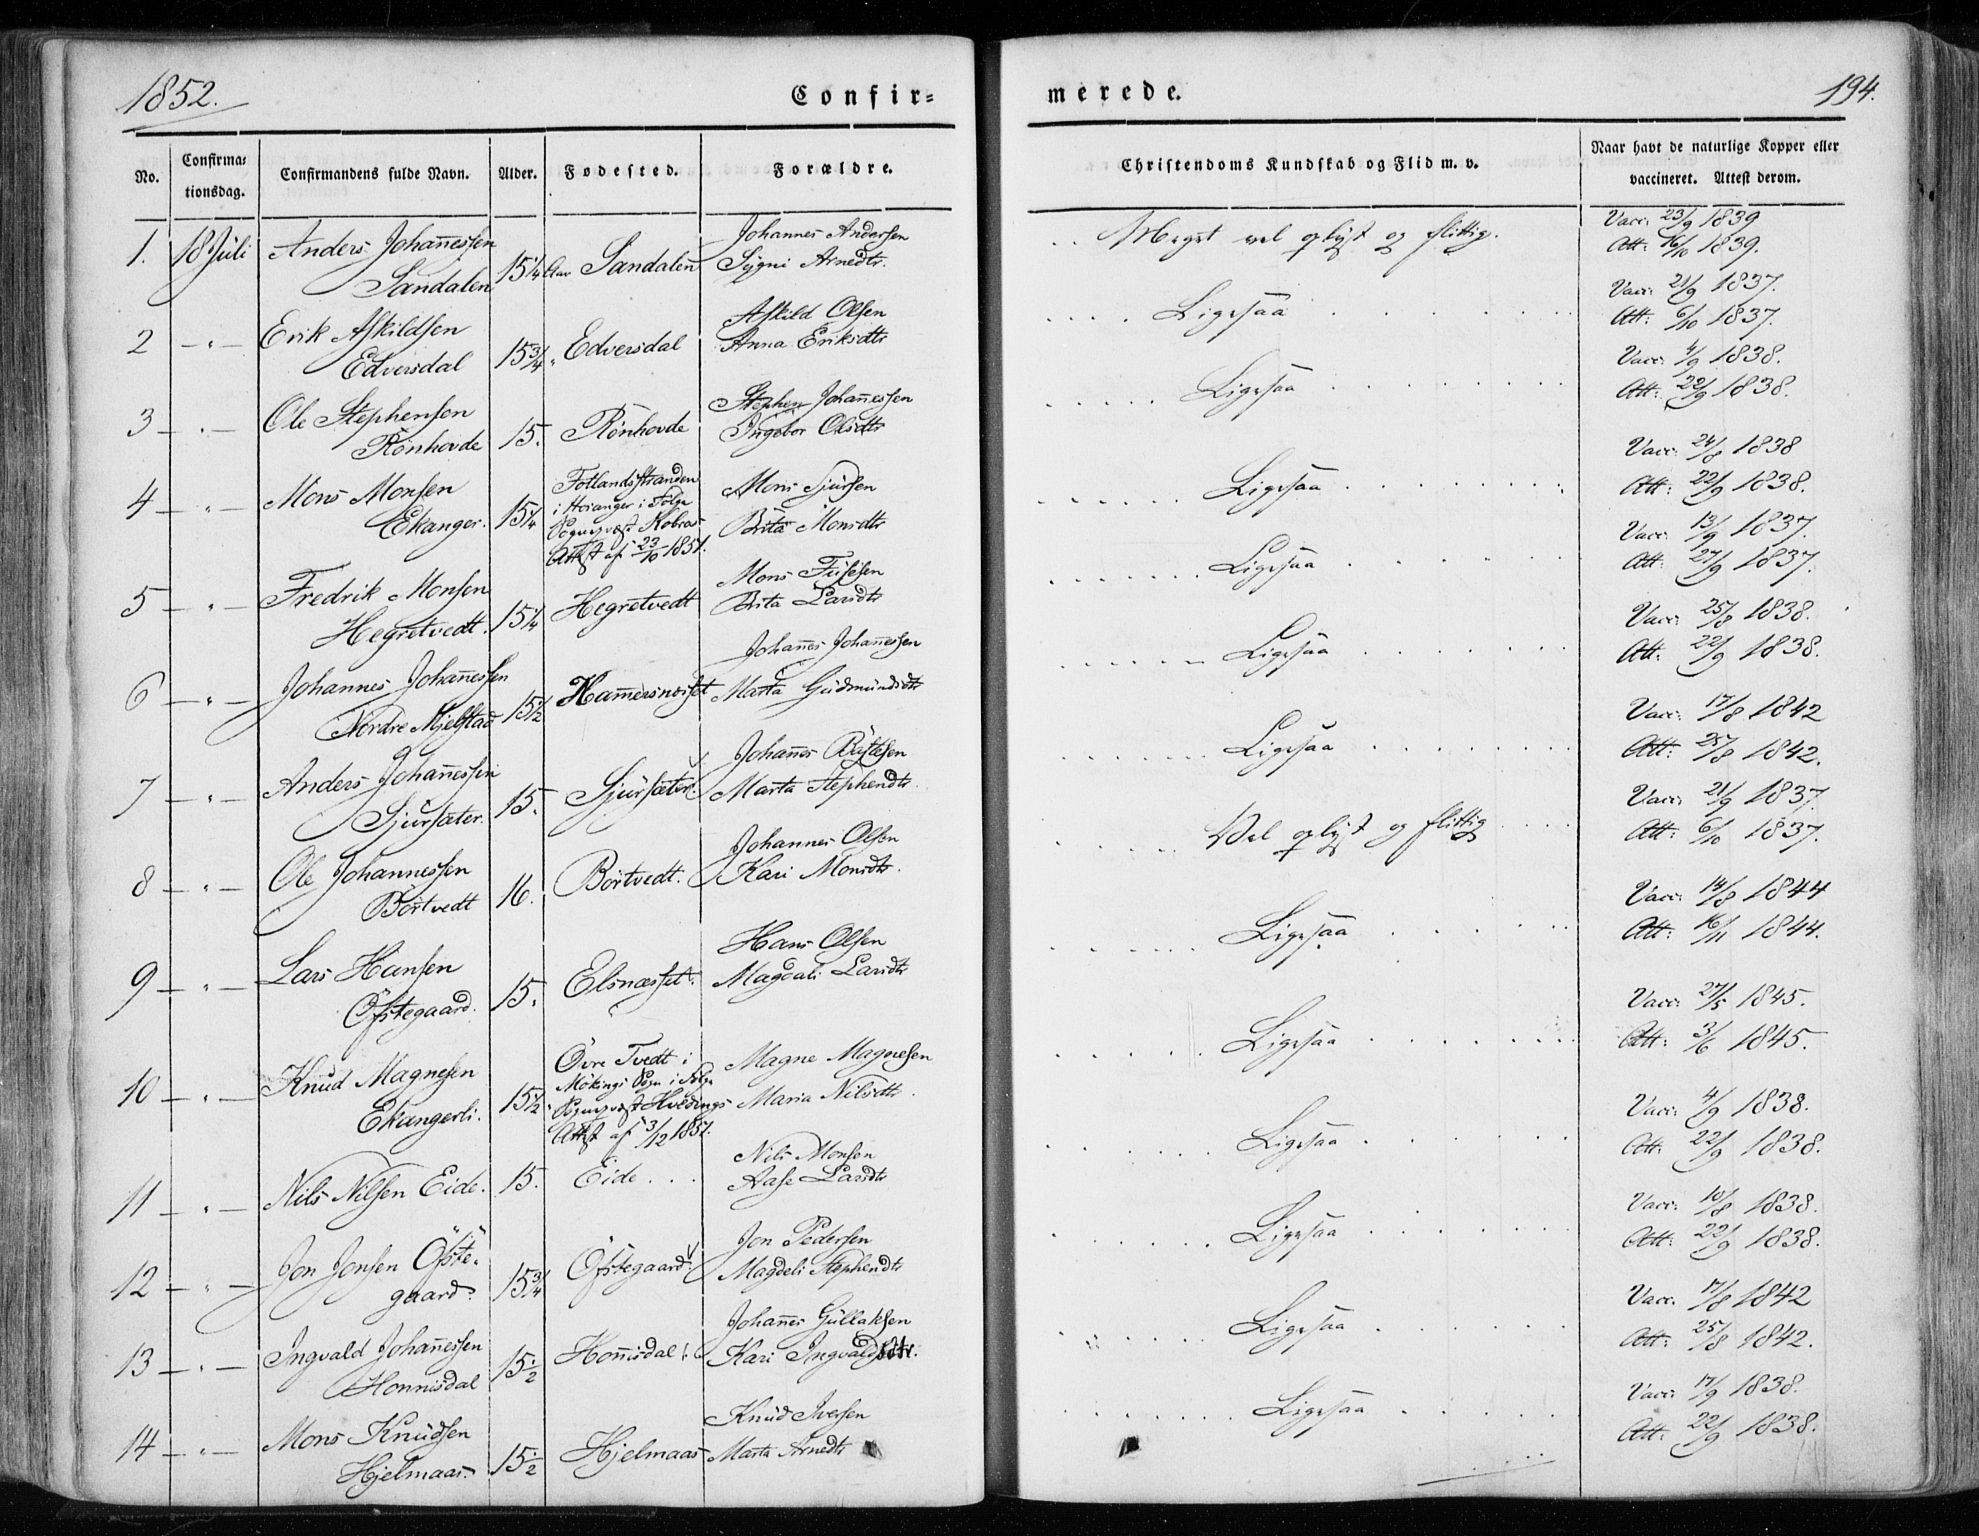 1852.
Confir-
merede.
194.
No.
Confirma-
tionsdag.
Confirmandens fulde Navn.
Alder.
Fødested.
Forældre.
Christendoms Kundskab og Flid m. v.
Naar havt de naturlige Kopper eller
vaccineret. Attest derom.
1. 18 Juli Anders Johannessen
Sandalen
15 1/4 Aar Sandalen
Johannes Andersen
Sygni Arnedtr.
Meget vel oplyst og flittig.
Vacc: 23/9 1839
Att: 16/10 1839.
2 - " - Erik Askildsen
Edversdal
15 3/4 " Edversdal
Askild Olsen
Anna Eriksdtr
Ligesaa
Vacc: 21/9 1837.
Att: 6/10 1837.
3 - " - Ole Stephensen
Rönhovde
15. Rönhovde
Stephen Johannessen
Ingebor Olsdtr
Ligesaa
Vacc: 4/9 1838.
Att: 22/9 1838.
4 - " - Mons Monsen
Ekanger.
15 1/4
Fotlandsstranden
i Hosanger i Følge
Sognepræst Kobros
Attest af 23/10 1851.
Mons Sjursen
Brita Monsdtr
Ligesaa
Vacc: 24/8 1838
Att: 22/9 1838.
5 - " - Fredrik Monsen
Hegretvedt.
15 1/4 Hegretvedt
Mons
Brita Larsdtr
Ligesaa
Vacc: 13/9 1837.
Att: 27/9 1837.
6 - " - Johannes Johannessen
Nordre Mjelstad
15 1/2 Hamersnæset
Johannes Johannessen
Marta Gudmundsdtr
Ligesaa
Vacc: 25/8 1838.
Att: 22/9 1838.
7 - " - Anders Johannessen
Sjursæter.
15. Sjursæter.
Johannes
Marta Stephendtr.
Ligesaa
Vacc: 17/8 1842
Att: 25/8 1842.
8 - " - Ole Johannessen
Börtvedt
16. Börtvedt.
Johannes Olsen
Kari Monsdtr.
Vel oplyst og flittig
Vacc: 21/9 1837.
Att: 6/10 1837.
9 - " - Lars Hansen
Öfstegaard.
15. Elsnæsset.
Hans Olsen
Magdali Larsdtr
Ligesaa
Vacc: 14/8 1844
Att: 16/11 1844.
10 - " - Knud Magnesen
Ekangerli.
15 1/2
Övre Tvedt i
Mökings Sogn i Følge
Sognepræst Hvedings
Attest af 3/12 1851.
Magne Magnesen
Maria Nilsdtr.
Ligesaa
Vacc: 27/5 1845.
Att: 3/6 1845.
11 - " - Nils Nilsen Eide.
15. Eide
Nils Monsen
Aase Larsdtr
Ligesaa
Vacc: 4/9 1838.
Att: 22/9 1838.
12 - " - Jon Jonsen Öfste-
gaard.
15 3/4 Öfstegaard
Jon Pedersen
Magdeli Stephendtr
Ligesaa
Vacc: 10/8 1838.
Att: 22/9 1838.
13 - " - Ingvald Johannessen
Honnisdal
15 1/2 Honnisdal
Johannes Gullaksen
Kari Ingvaldsdtr.
Ligesaa
Vacc. 17/8 1842
Att: 25/8 1842.
14 - " - Mons Knudsen
Hjelmaas.
15 1/2 Hjelmaas
Knud Iversen
Marta Arnedtr
Ligesaa
Vacc: 17/9 1838.
Att: 22/9 1838.